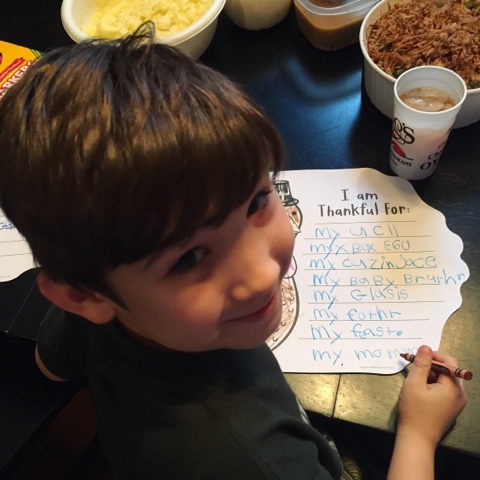 MARKERS
I am
Thankful For:
My UCll
My XBOX 360
My cuzin Jace
My BaBy Bruthr
My Glasis
My fothr
My feast
My momm